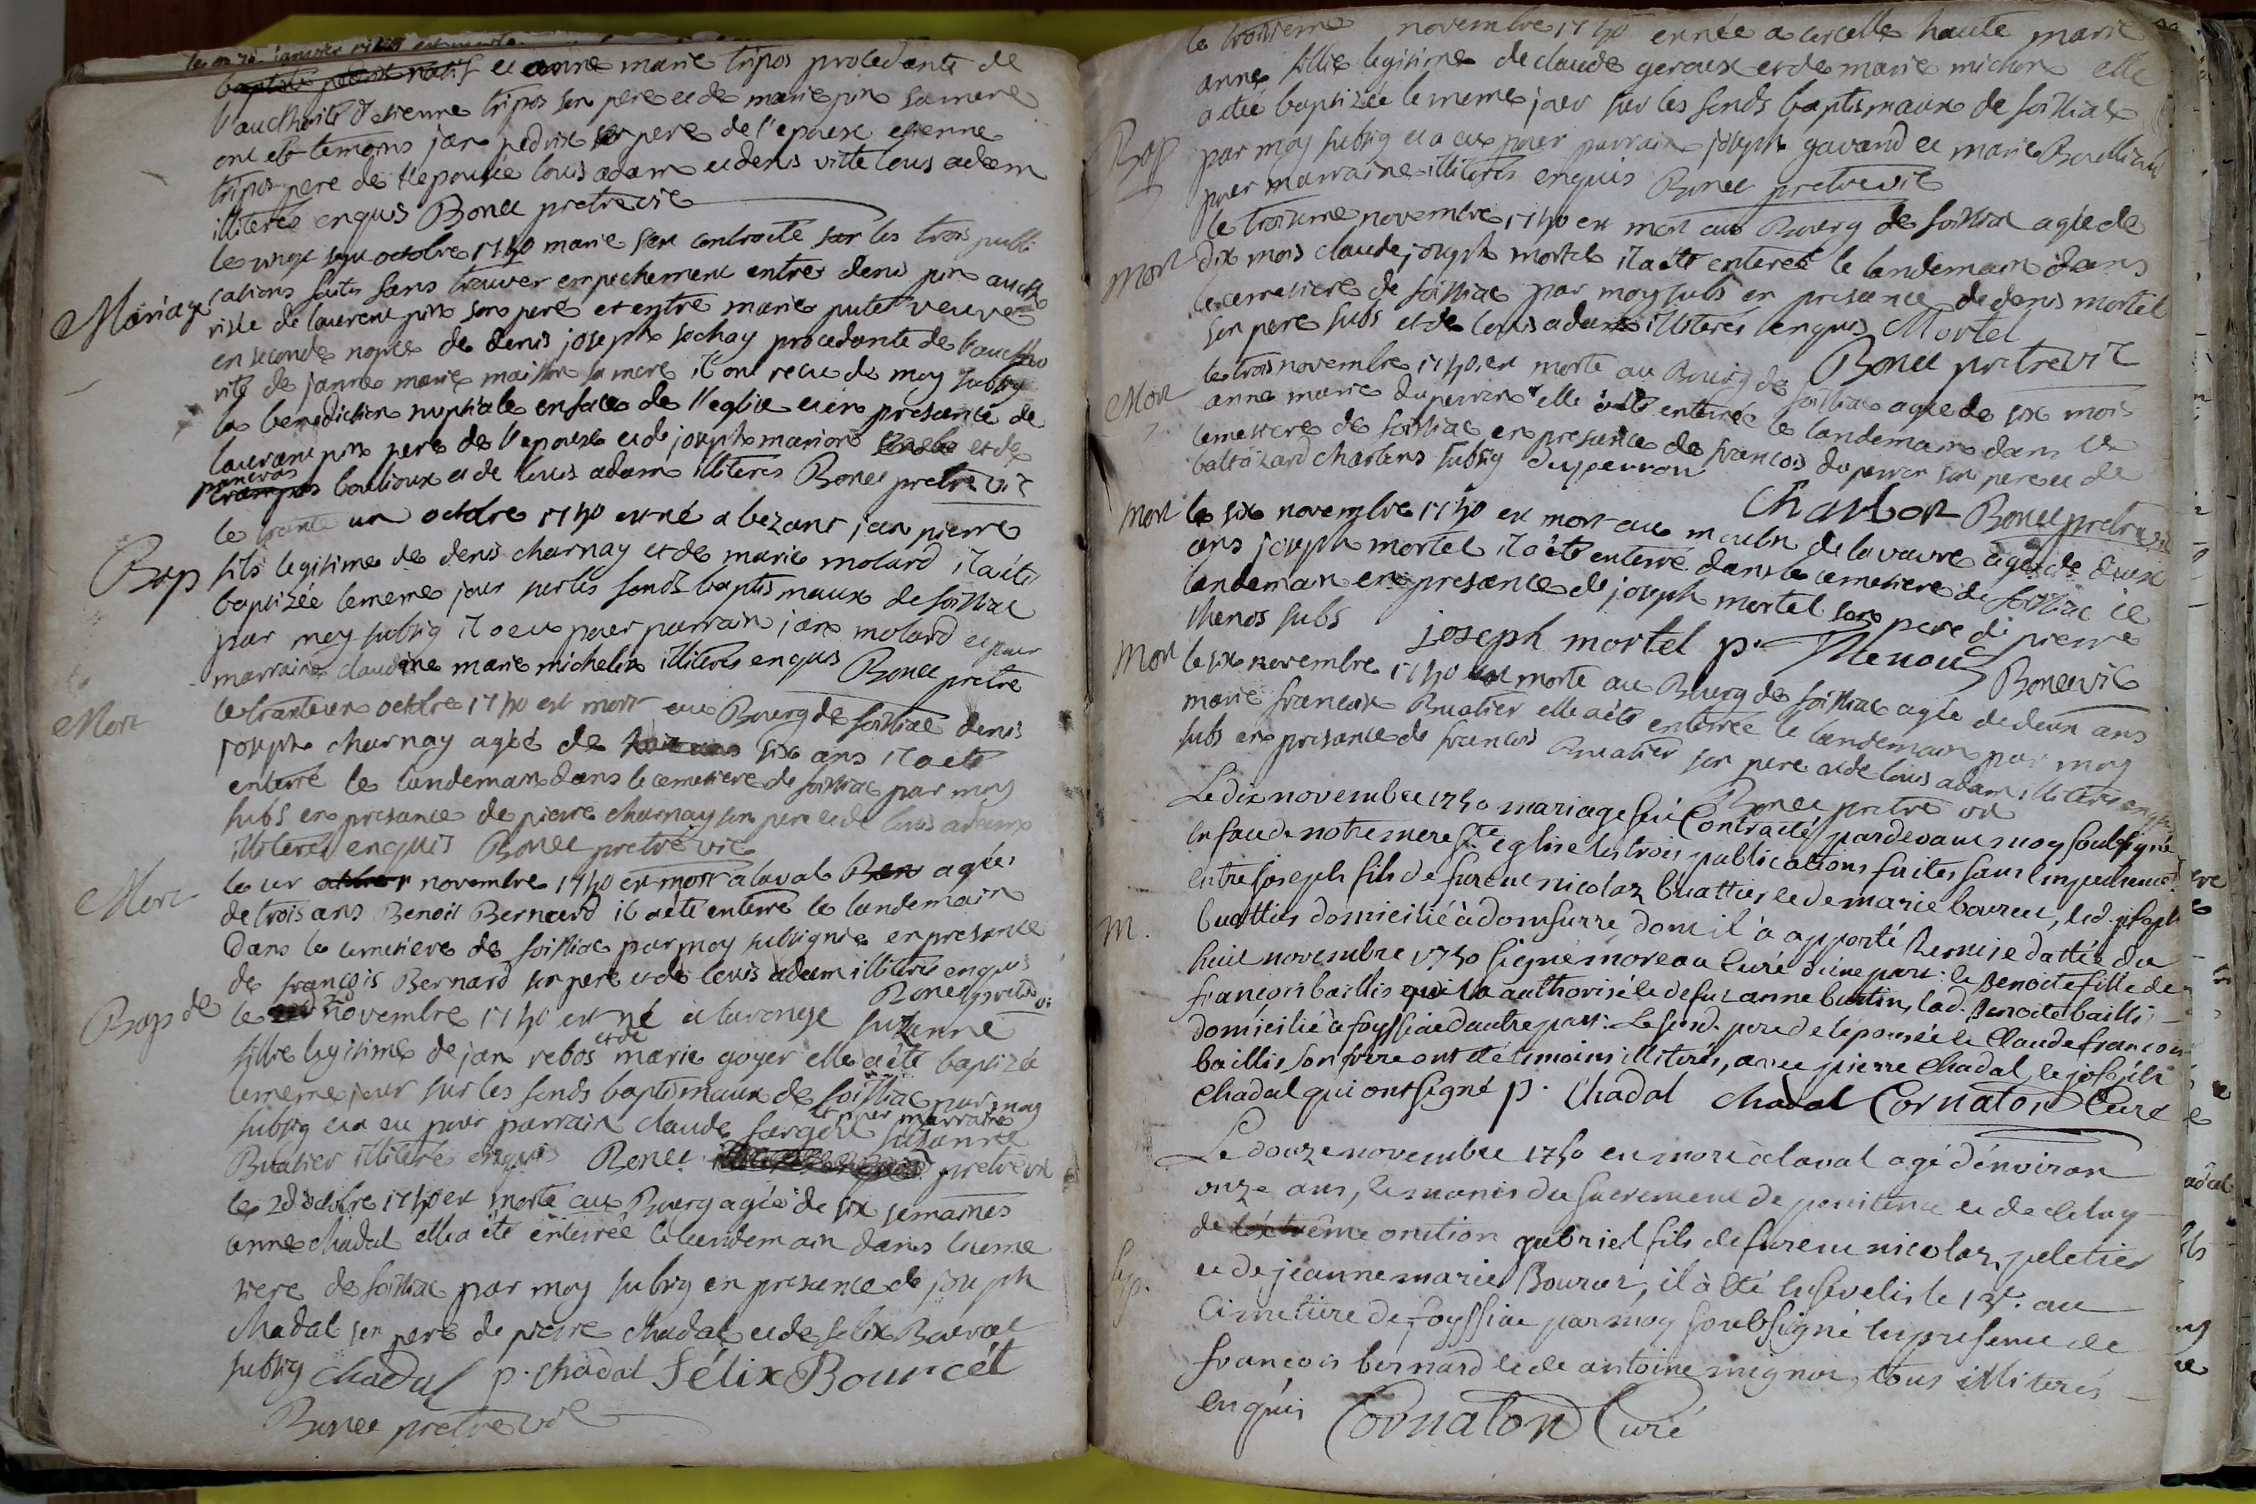 et anne marie tripos procedante de
l'aucthorité d'etienne tripos son pere et de marie pin sa mere
ont ete temoins jan pere de l'epoux etienne
tripos pere de l'epousée louis adam et denis vitte louis adam
illiteres enquis Bonet pretre vic
le vingt sept octobre 1740 mariage feu contracté les trois publi
Mariage
cations faites sans trouver empechement entre denis pin aucth
risée de laurent pin son pere et entre marie putet veuve
en seconde nopce de denis joseph sochay procedante de l'autho
rité de janne marie maison sa mere il ont recu de moy subsig
la benediction nuptiale en face de l'eglise et en presance de
laurant pin pere de l'epoux et de joseph marion et de
pancras bouilioux et de louis adam illiteres Bonet pretre vic
le trante un octobre 1740 est né a bezans jan pierre
Bap
fils legitime de denis charnay et de marie molard il a été
baptizée le meme jour sur les fonds baptismaux de foissiac
par moy subsig il a eu pour parrain jan molard et pour
marraine claudine marie michelin illiteres enquis Bonet pretre
Mort
le trante un octobre 1740 est mort au Bourg de foissiac denis
joseph charnay agée de six ans il a ete
enterré le landemain dans le cemetiere de foissiac par moy
subs en presance de pierre charnay son pere et de louis adam
illiteres enquis Bonet pretre vic
Mort
le un novembre 1740 est mort a laval agée
de trois ans Benoit Bernard il a été enterré le landemain
Dans le cemetiere de foissiac par moy subsignée en presance
de françois Bernard son pere et de louis adam illiteres enquis
Bonet pretre vi
Bap de
le 2d novembre 1740 est né a suzanne
fillie legitime de jan rebos et de marie goyer elle a été baptizée
le meme jour sur les fonds baptismaux de foissiac par moy
subsig et a eu pour parrain claude et pour marraine suzanne
Buatier illiteres enquis Bonet pretre vic
le 2d octobre 1740 est morte au Bourg agée de six semaines
anne chadal elle a été enterrée le landemain dans le ceme
tiere de foissiac par moy subsig en presance de joseph
chadal son pere de pierre chadal et de felix Bourcet
subsig chadal p. chadal félix Bourcét
Bonet pretre vic
le troisieme novembre 1740 est née a cercelle haute marie
anne fillie legitime de claude geroux et de marie michon elle
a été baptizée le meme jour sur les fonds baptismaux de foissiac
Bap
par moy subsig et a eu pour parrain joseph gavand et marie
pour marraine illiteres enquis Bonet pretre vic
le troisieme novembre 1740 est mort au Bourg de foissiac agée de
Mort
dix mois claude joseph mortel il a ete enterré le landemain dans
le cemetiere de foissiac par moy subs en presance de denis mortel
son pere subs et de louis adam illiteres enquis Mortel
Bonet pretre vic
Mort
le trois novembre 1740 est morte au Bourg de foissiac agée de six mois
anne marie duperron elle a été enterrée le landemain dans le
cemetiere de foissiac en presance de francois duperron son pere et de
baltazard subsig duperron
Charbon Bonet pretre vic
Mort
le six novembre 1740 est mort au moulin de lavavre agée de deux
ans joseph mortel il a été enterré dans le cemetiere de foissiac le
landemain en presance de joseph mortel son pere de pierre
thenos subs joseph mortel p. Thenoud
Bonet vic
Mort
le six novembre 1740 est morte au Bourg de foissiac agée de deux ans
marie francoise Buatier elle a été enterrée le landemain par moy
subs en presance de francois Buatier son pere et de louis adam illiteres enquis
Bonet pretre vic
Le dix novembre 1740 mariage feu Contracté pardevant moy soubsigné
en face de notre mere Ste eglise les trois publications faites sans empechement
entre joseph fils de fureut nicolaz buattier et de marie bourcet, led. joseph
M.
buattier domicilié à domsurre, dont il à apporté Remise dattée du
huit novembre 1740 signé moreau curé d'une part: et benoite fille de
francois baillis qui l'a authorisé et de fut anne buttin, lad. benoite baillis
domicilié à foyssiac d'autre part. Le susd. pere de l'épousée et Claude francois
baillis son frere ont été témoins illiterés, avec pierre chadal, et joseph
chadal qui ont signé p. Chadal Chadal Cornaton Curé
Le douze novembre 1740 est mort à laval agé d'environ
onze ans, et munis du sacrement de penitence et de celuy
de l'extrême onction gabriel fils de fureut nicolaz peletier
Sep.
et de jeanne marie Bourcet, il à été ensevelis le 13e. au
Cimetiere de foyssiac par moy soubsigné en presence de
francois bernard et de antoine mignot, tous illiterés
enquis Cornaton Curé